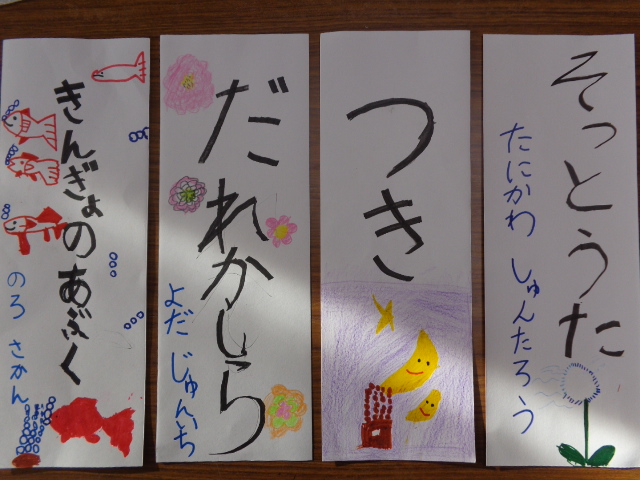 そっとうた
たにかわ しゅんたろう
つき
だれかしら
よだ じゅんいち
きんぎょのあぶく
のろ さかん